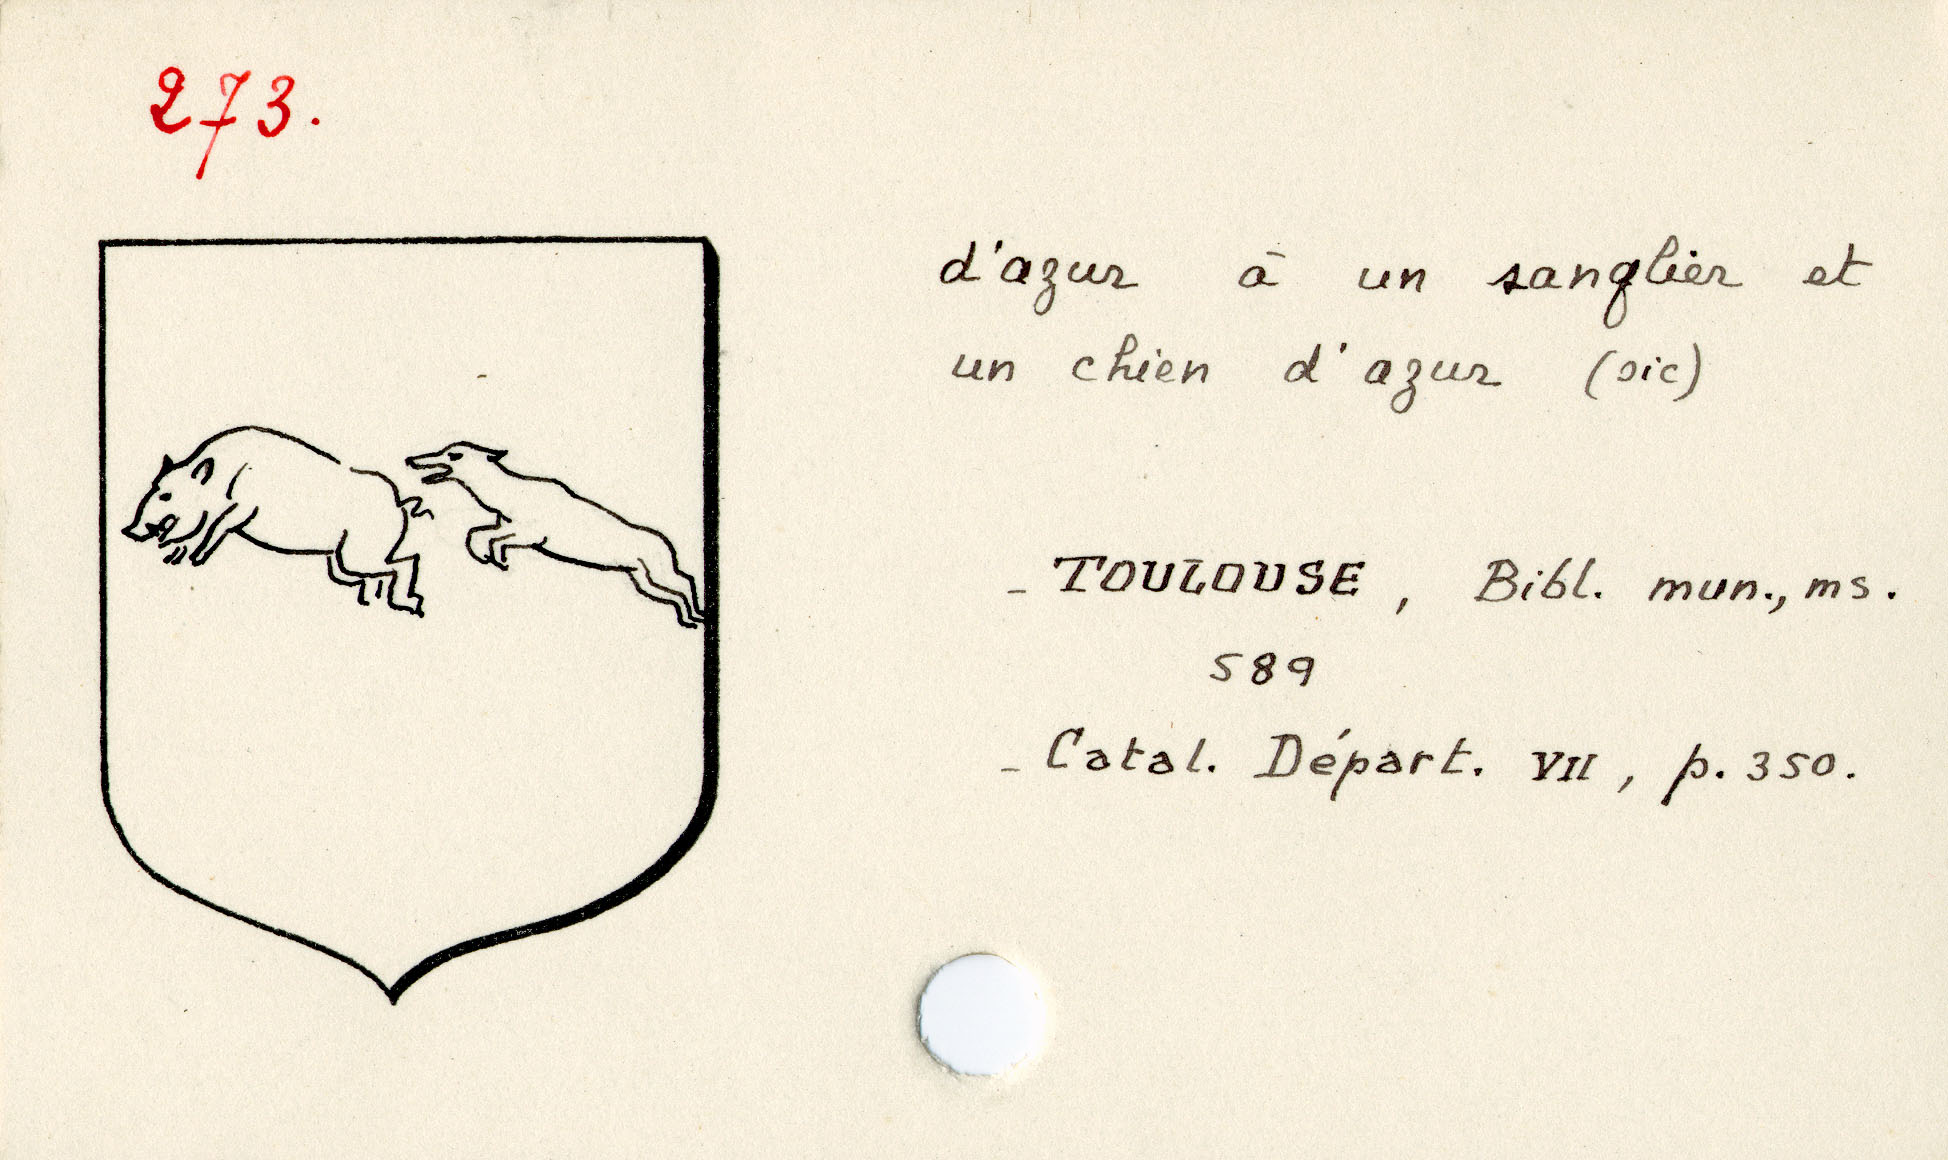 273.
d'azur à un sanglier et
un chien d'azur (sic)
- TOULOUSE, Bibl. mun., ms.
589
- Catal. Départ. VII, p. 350.